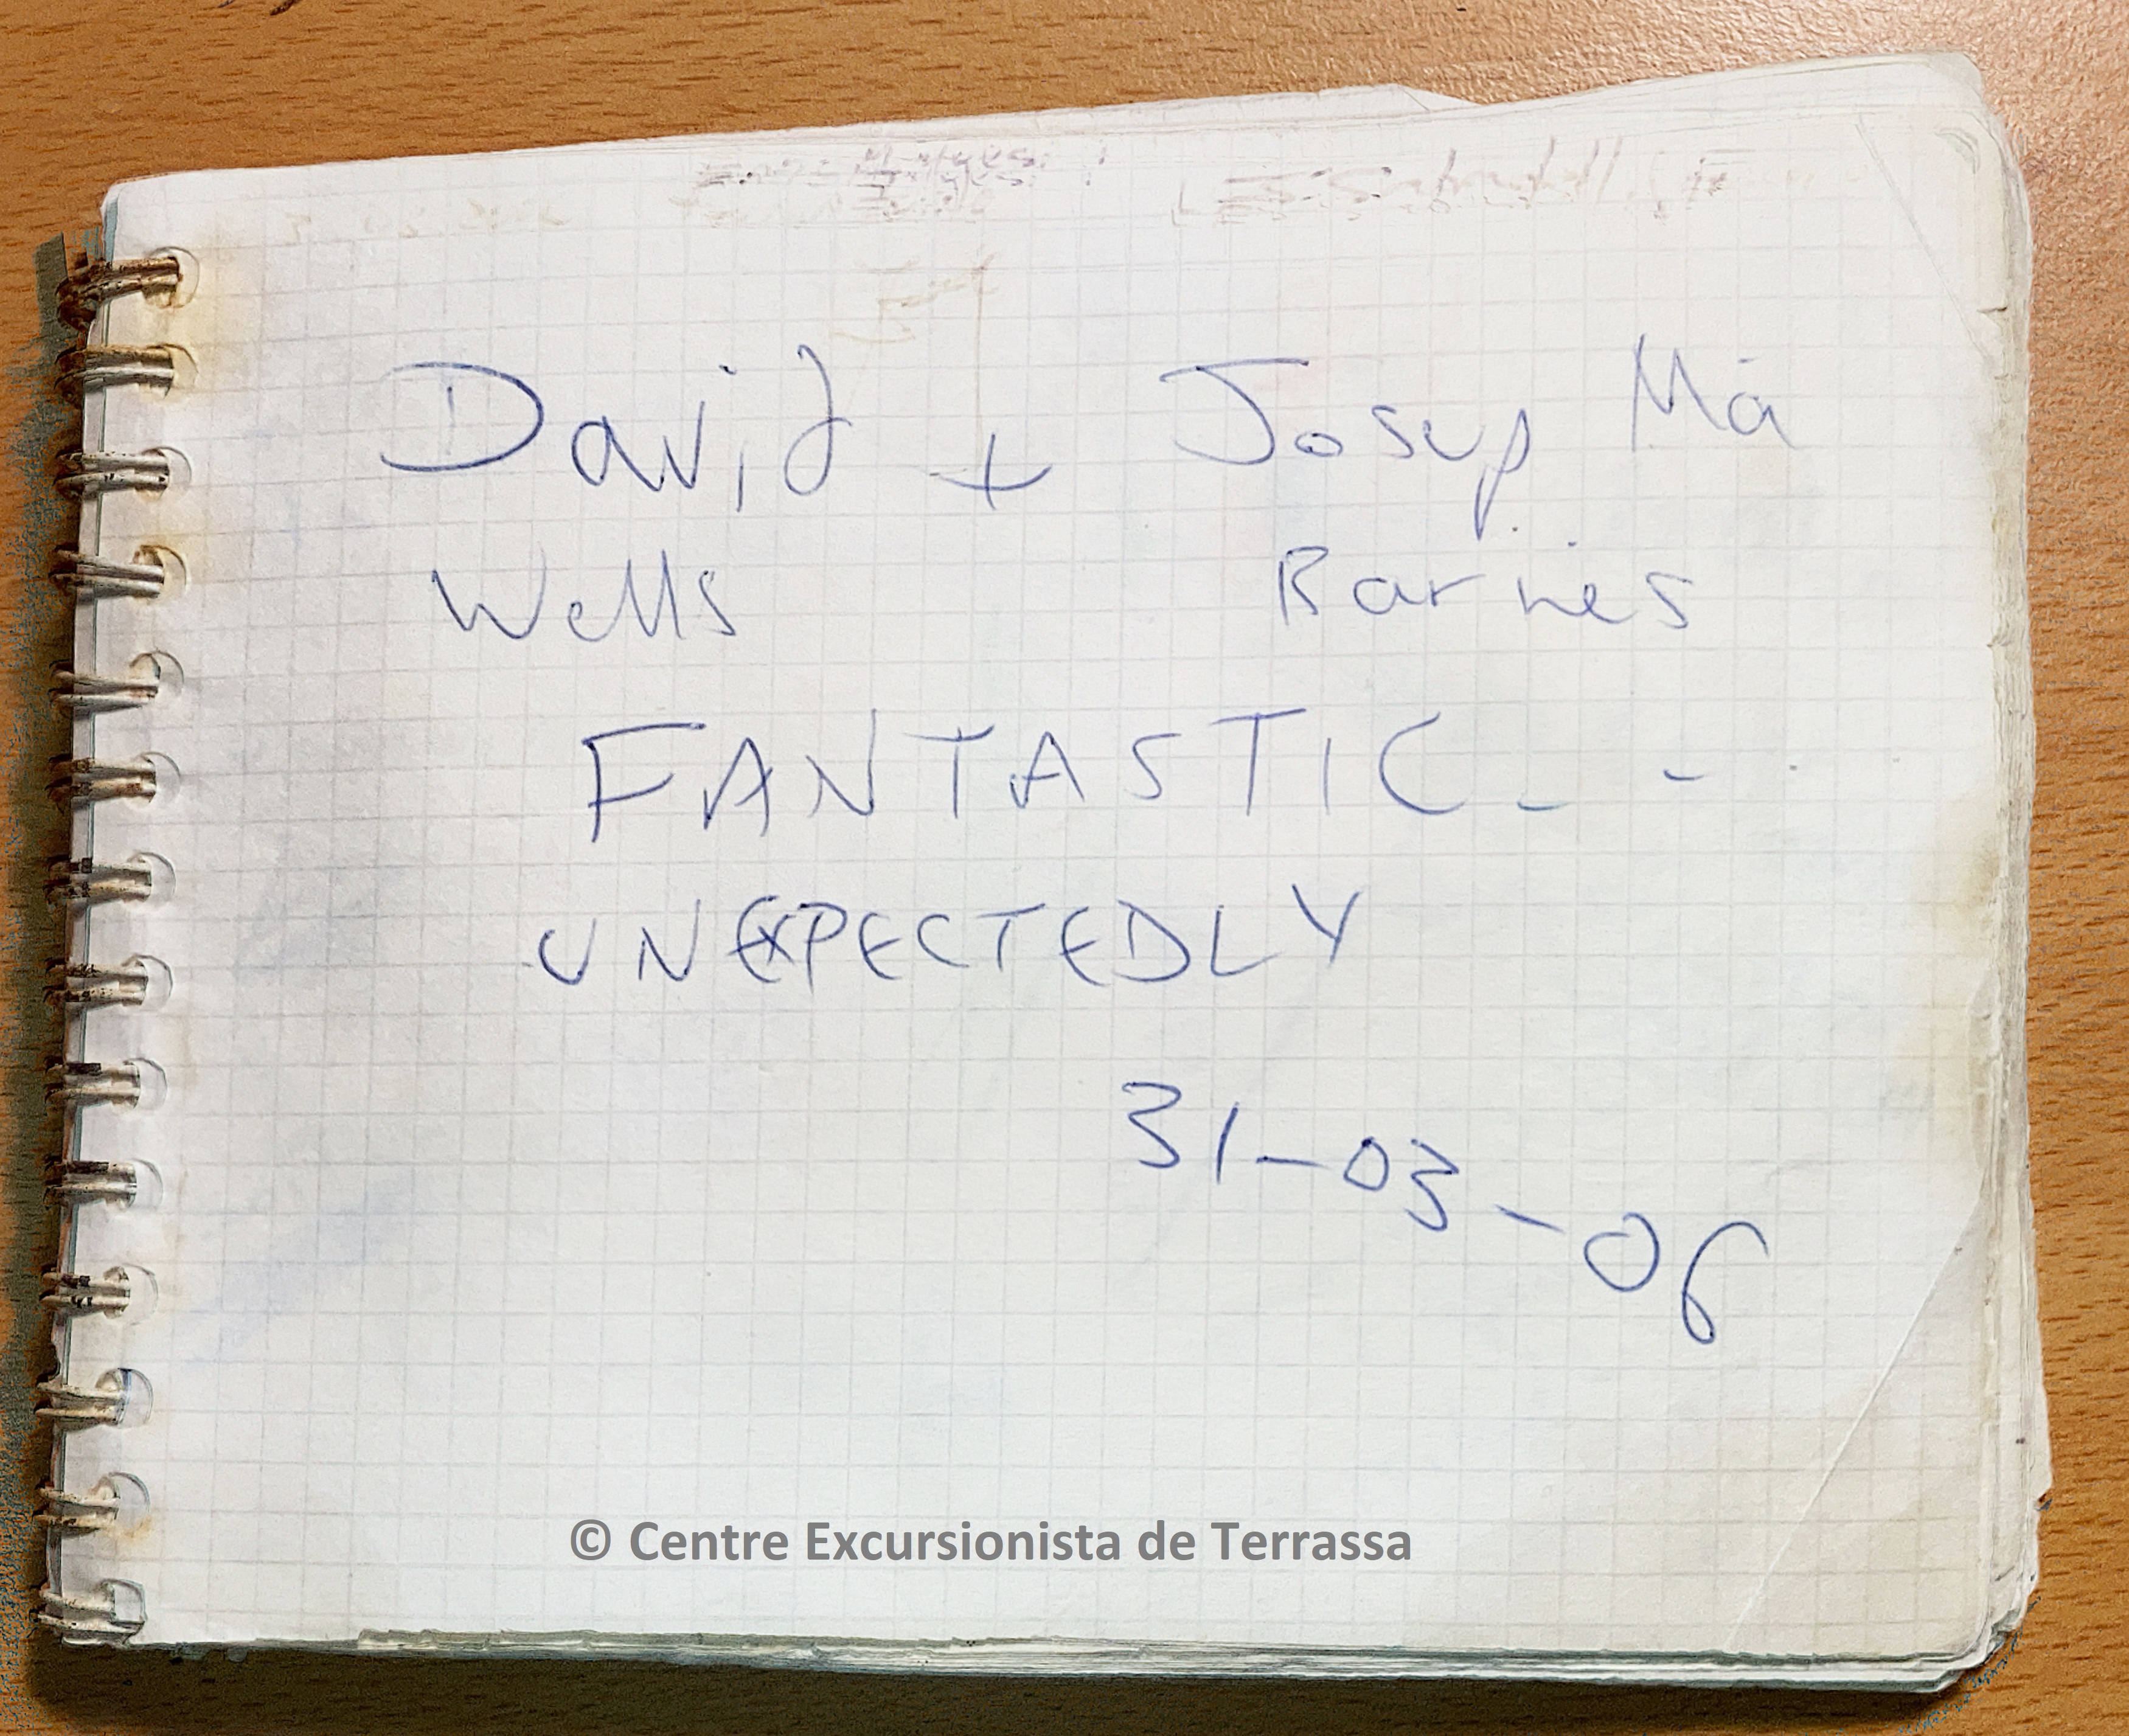 David + Josep Mª
Wells Barnés
FANTASTIC - - .
UNEXPECTEDLY
31-03-06
© Centre Excursionista de Terrassa